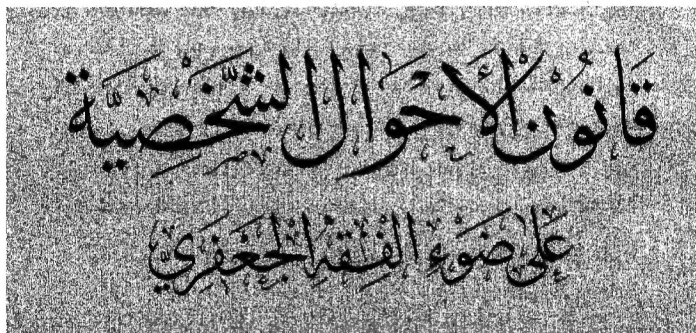 قَانُونُ الأَحْوَالِ الشَّخْصِيَّة
عَلَى ضَوْءِ الفِقْهِ الجَعْفَرِيّ